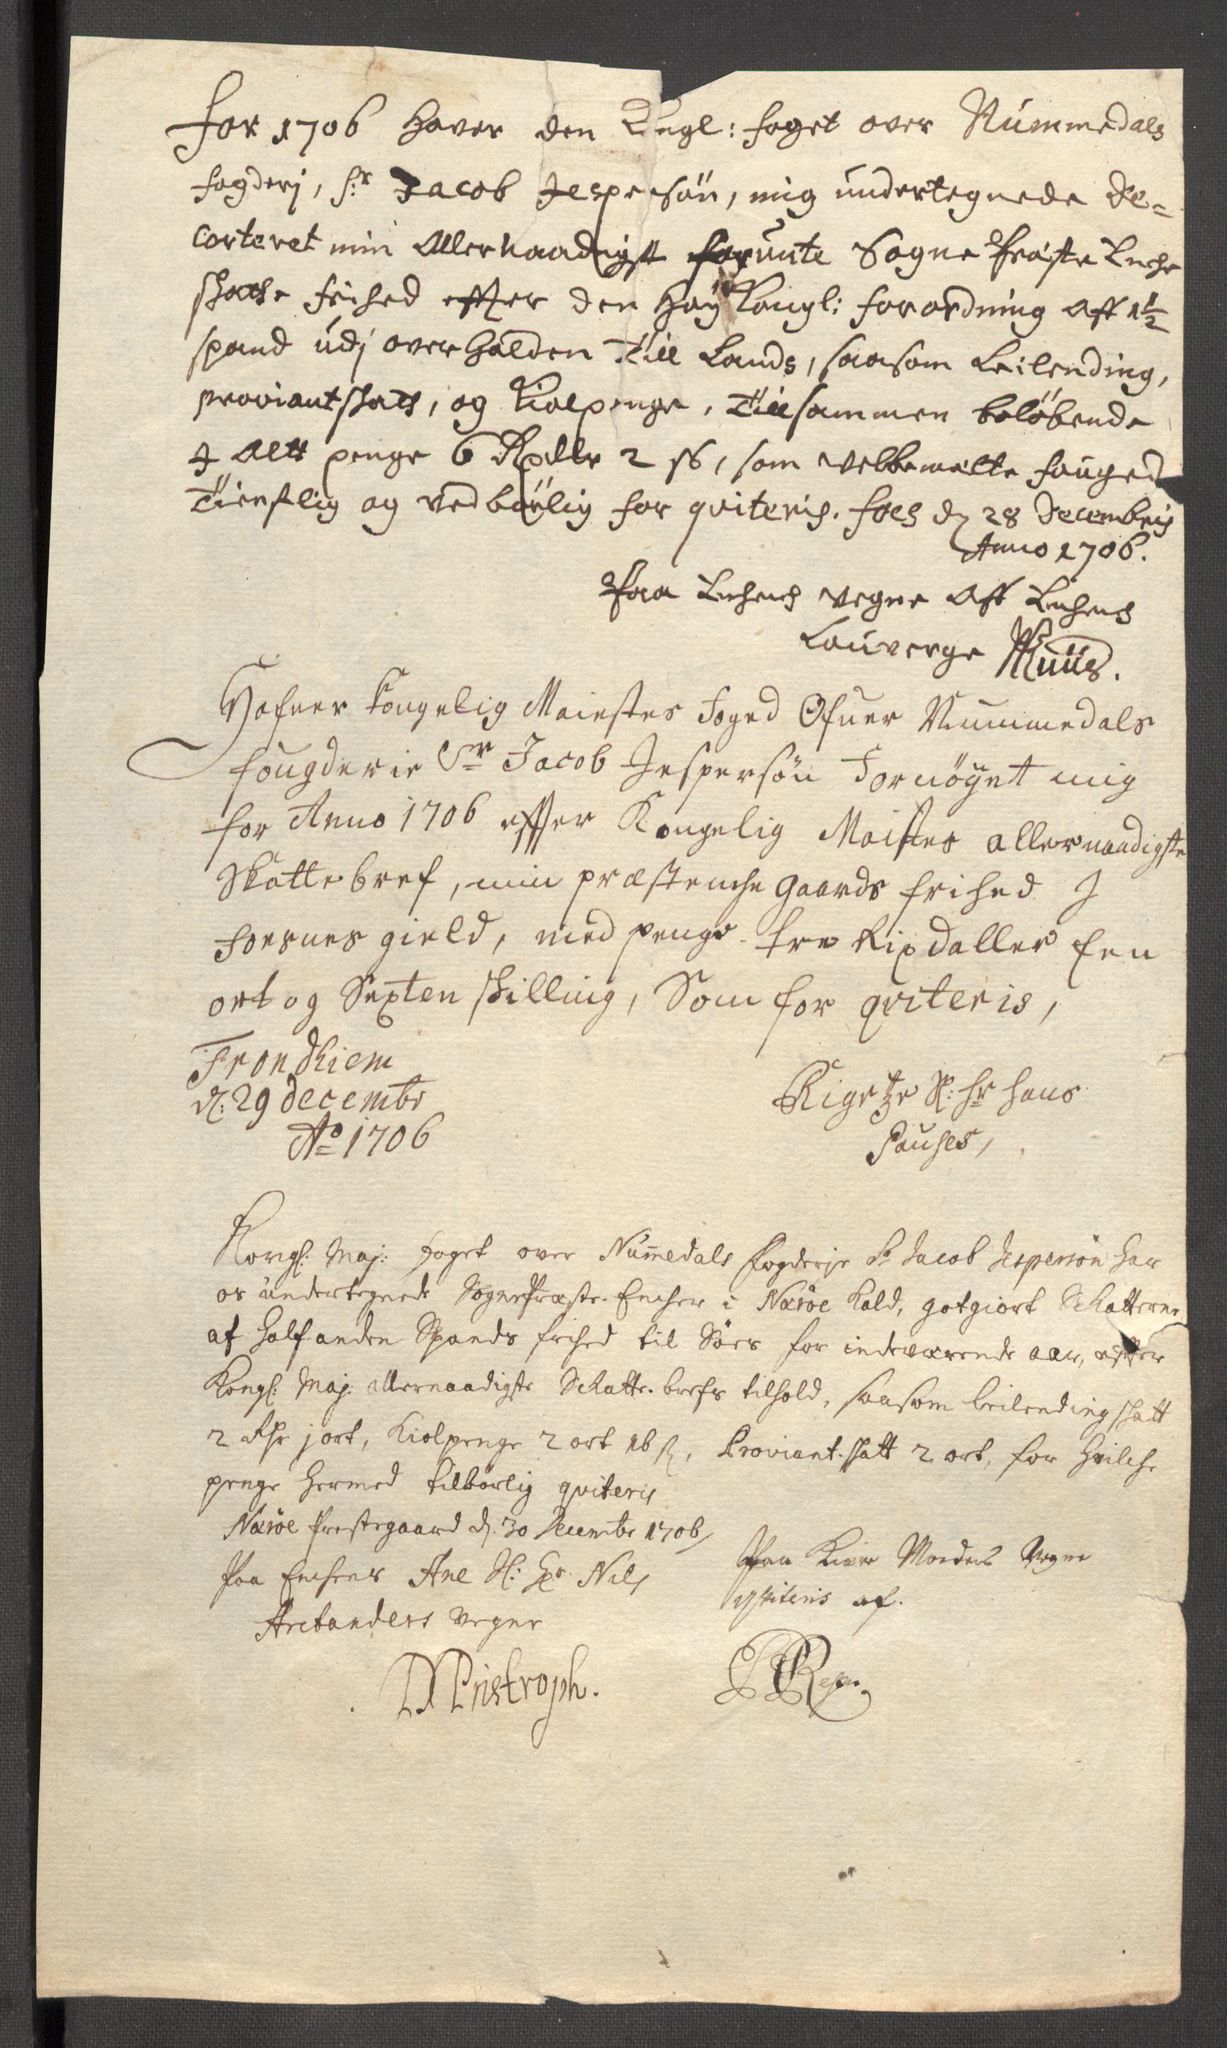 For 1706 haver den Kngl: foget over Nummedals
fogderj, Sr Jacob Jespersøn, mig undertegnede De=
corteret min Allernaadigst forunte Sogne Præste Enche
skatts frihed effter den høy Kongl: forordning Aff 1½
spand udj overhalden Till Lands, saasom Leilending,
proviantskatt, og Kiolpenge, Tillsammen beløbende
J Alt penge 6 Rdlr 2 ß, som velbemelte fouged
Tienstlig og vedbørlig for qviteris. Foes d 28 Decembris
Anno 1706.
Paa Enchens vegne Aff Enchens
Lauverge Muus.
Hafuer Kongelig Maiestes Foged Ofuer Nummedals
fougderie Sr Jacob Jespersøn Fornöyet mig
for Anno 1706 effter Kongelig Maistes allernaadigste
Skattebref, min præstenche gaards frihed J
Foesnes gield, med penge tre Rixdaller Een
ort og Sexten skilling, Som for qviteris,
Trondhiem
d: 29 decembr
Ao 1706
Sl: hr hans
Pauses,
Kongl: Maj: Foget over Nummedals Fogderje Sr Jacob Jespersøn har
os undertegnede SognePræste-Encher i Næröe Kald, gotgiort Skatterne
af halfanden Spands frihed til Söes for indeværende aar, efter
Kongl: Maj: allernaadigste Skatte-brefs tilhold, saasom leilending skatt
2 Rdr 1 ort, Kiolpenge 2 ort 16 ß, Proviant-skatt 2 ort, for hvilche
penge hermed tilbörlig qviteris
Næröe Prestegaard d. 30 Decembr 1706
Paa Enchens Ane Sl: Hr. Nils
Arctanders vegne
DPristroph.
Paa Kiere Moders Vegne
qviteris af.